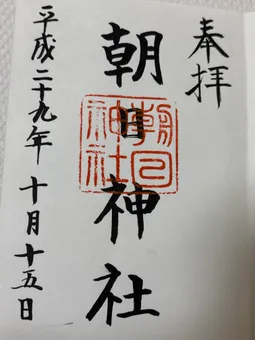 奉拝
朝日神社
平成二十九年 十月十五日
朝日
神社